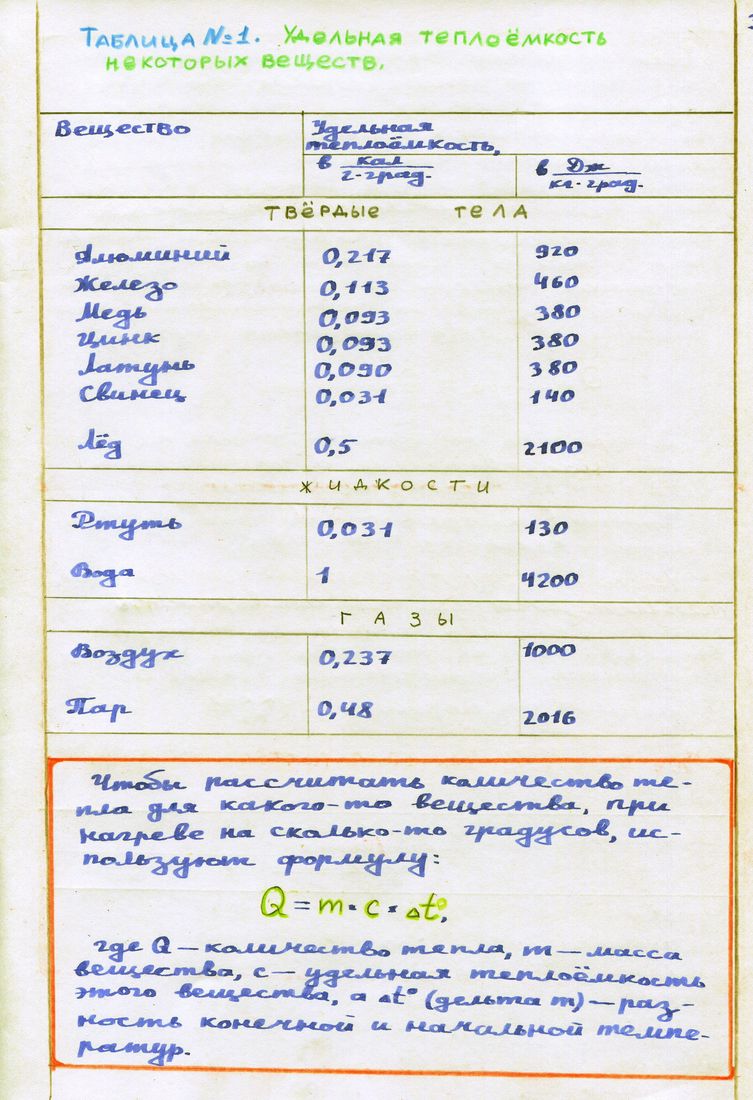 ТАБЛИЦА №1. УДЕЛЬНАЯ ТЕПЛОЁМКОСТЬ
НЕКОТОРЫХ ВЕЩЕСТВ.
Вещество Удельная
теплоёмкость,
в кал/г·град. в Дж/кг·град.
ТВЁРДЫЕ ТЕЛА
Алюминий 0,217 920
Железо 0,113 460
Медь 0,093 380
Цинк 0,093 380
Латунь 0,090 380
Свинец 0,031 140
Лёд 0,5 2100
ЖИДКОСТИ
Ртуть 0,031 130
Вода 1 4200
ГАЗЫ
Воздух 0,237 1000
Пар 0,48 2016
Чтобы рассчитать количество те-
пла для какого-то вещества, при
нагреве на сколько-то градусов, ис-
пользуют формулу:
Q = m · c · Δt°,
где Q — количество тепла, m — масса
вещества, c — удельная теплоёмкость
этого вещества, а Δt° (дельта т) — раз-
ность конечной и начальной темпе-
ратур.